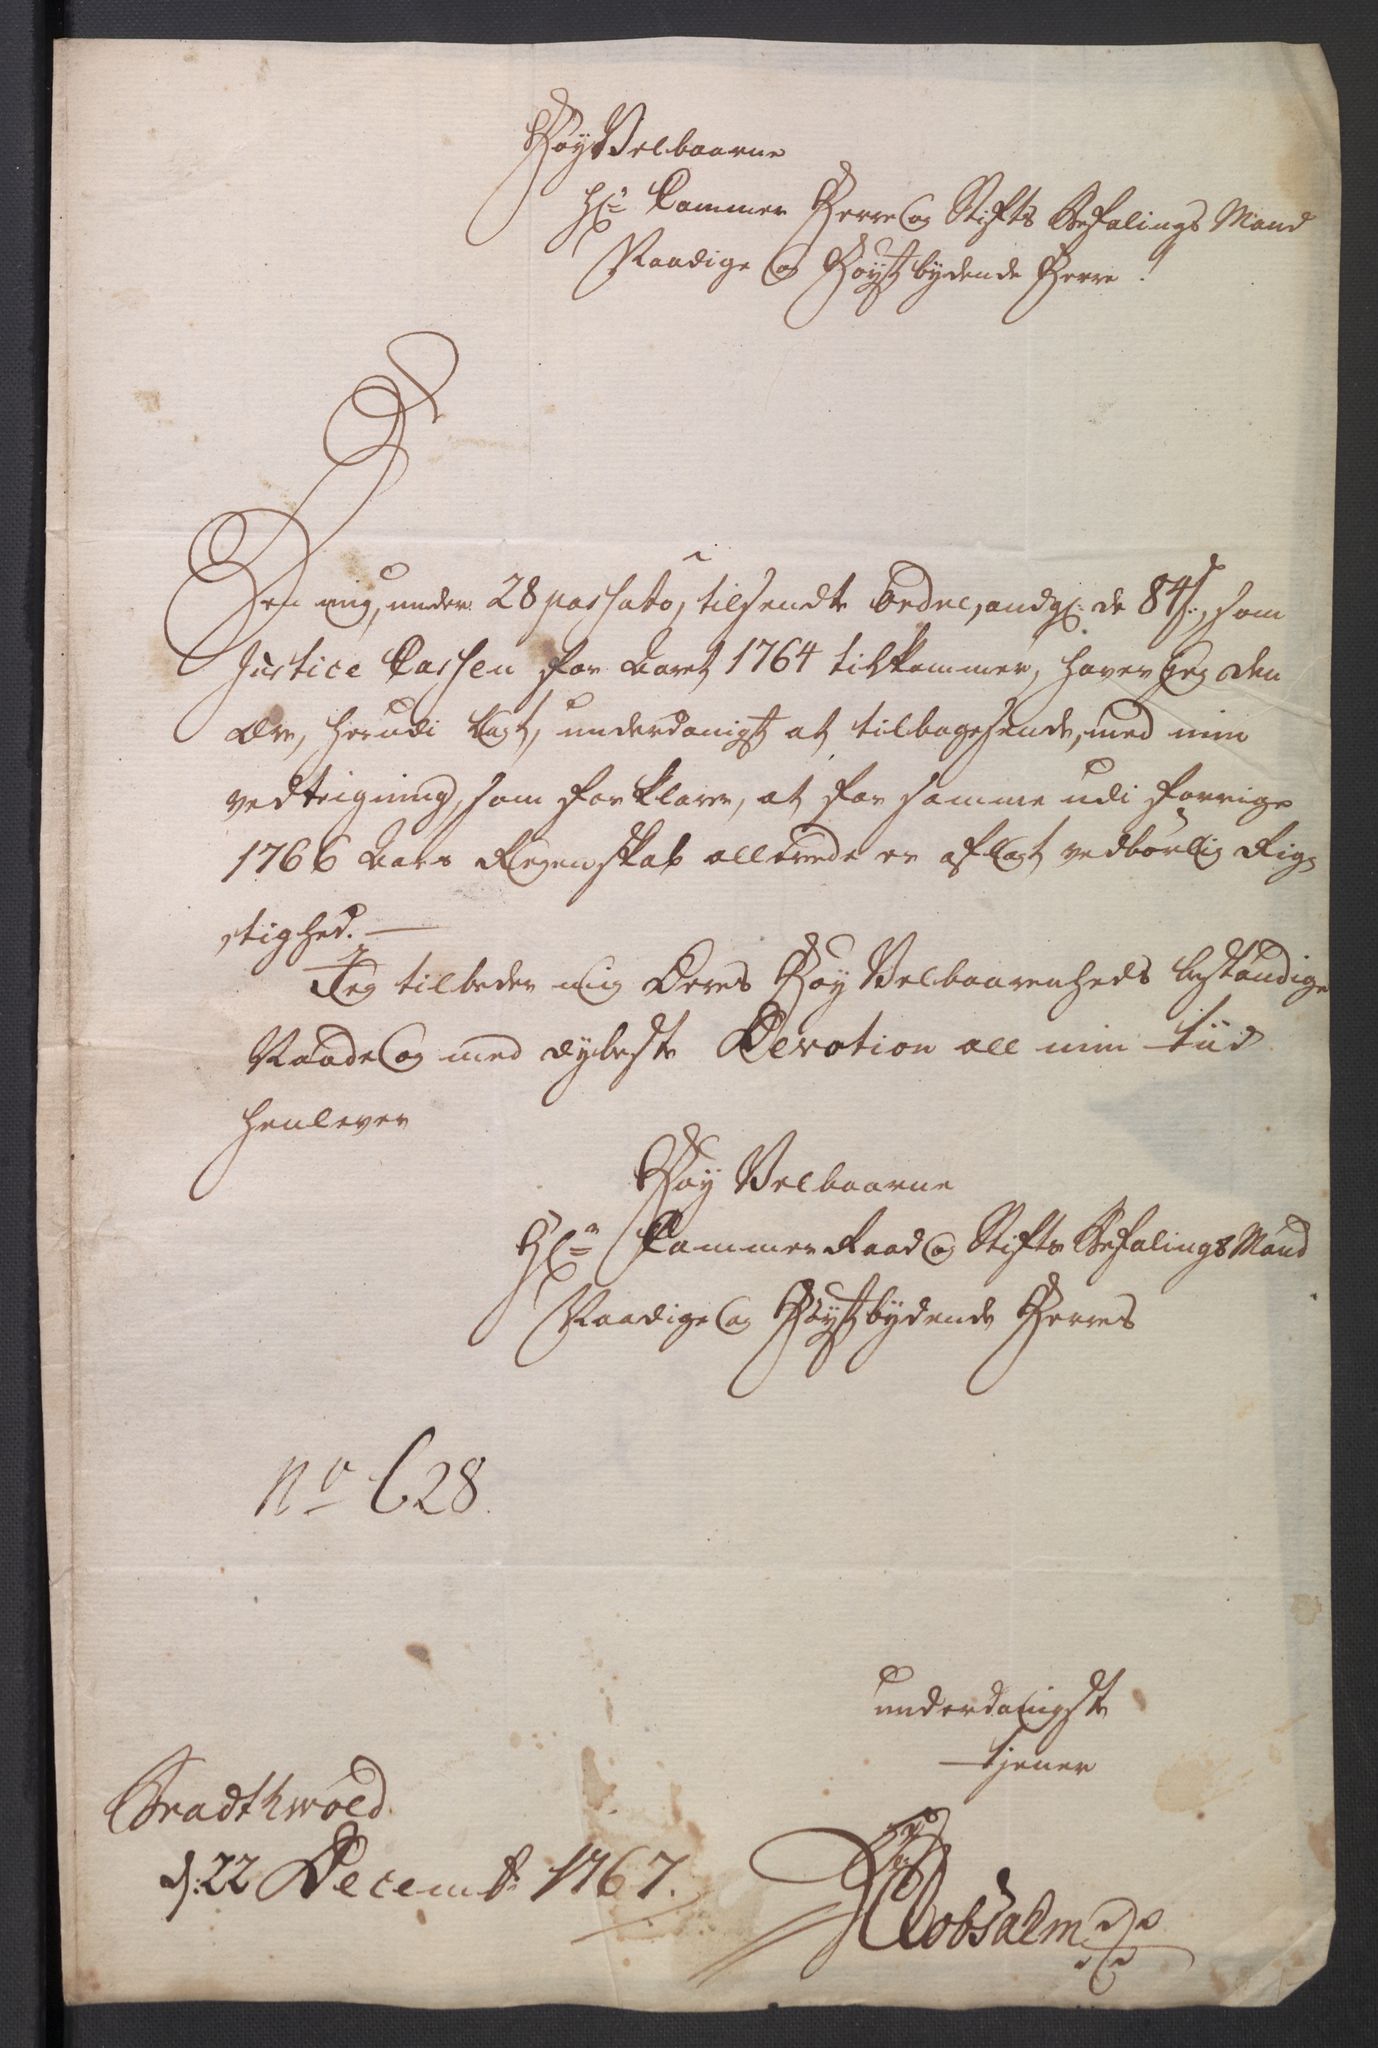 HöyVelbaarne
Hr: Cammer Herre og Stifts Befalings Mand
Naadige og Höystbydende Herre!
Den mig, under 28 passato, tilsendte Ordre, andg: de 84 s:, som
Justice Cassen for Aaret 1764 tilkommer, haver jeg den
Ære, herudi lagt, underdanigst at tilbagesende, med min
vedteigning, som forklarer, at for samme udi forrige
1766 Aars Regenskab allerede er aflagt vedbörlig Rig-
tighed.
Jeg tilbeder mig Deres HöyVelbaarenheds bestandige
Naade og med dybeste Devotion all min tiid
henlever
HöyVelbaarne
Hr: Cammer Raad og Stifts Befalings Mand
Naadige og Höystbydende Herres
No 628.
underdanigste
tjener
Bradtwold
d: 22 Decembr: 1767.
Robsahm